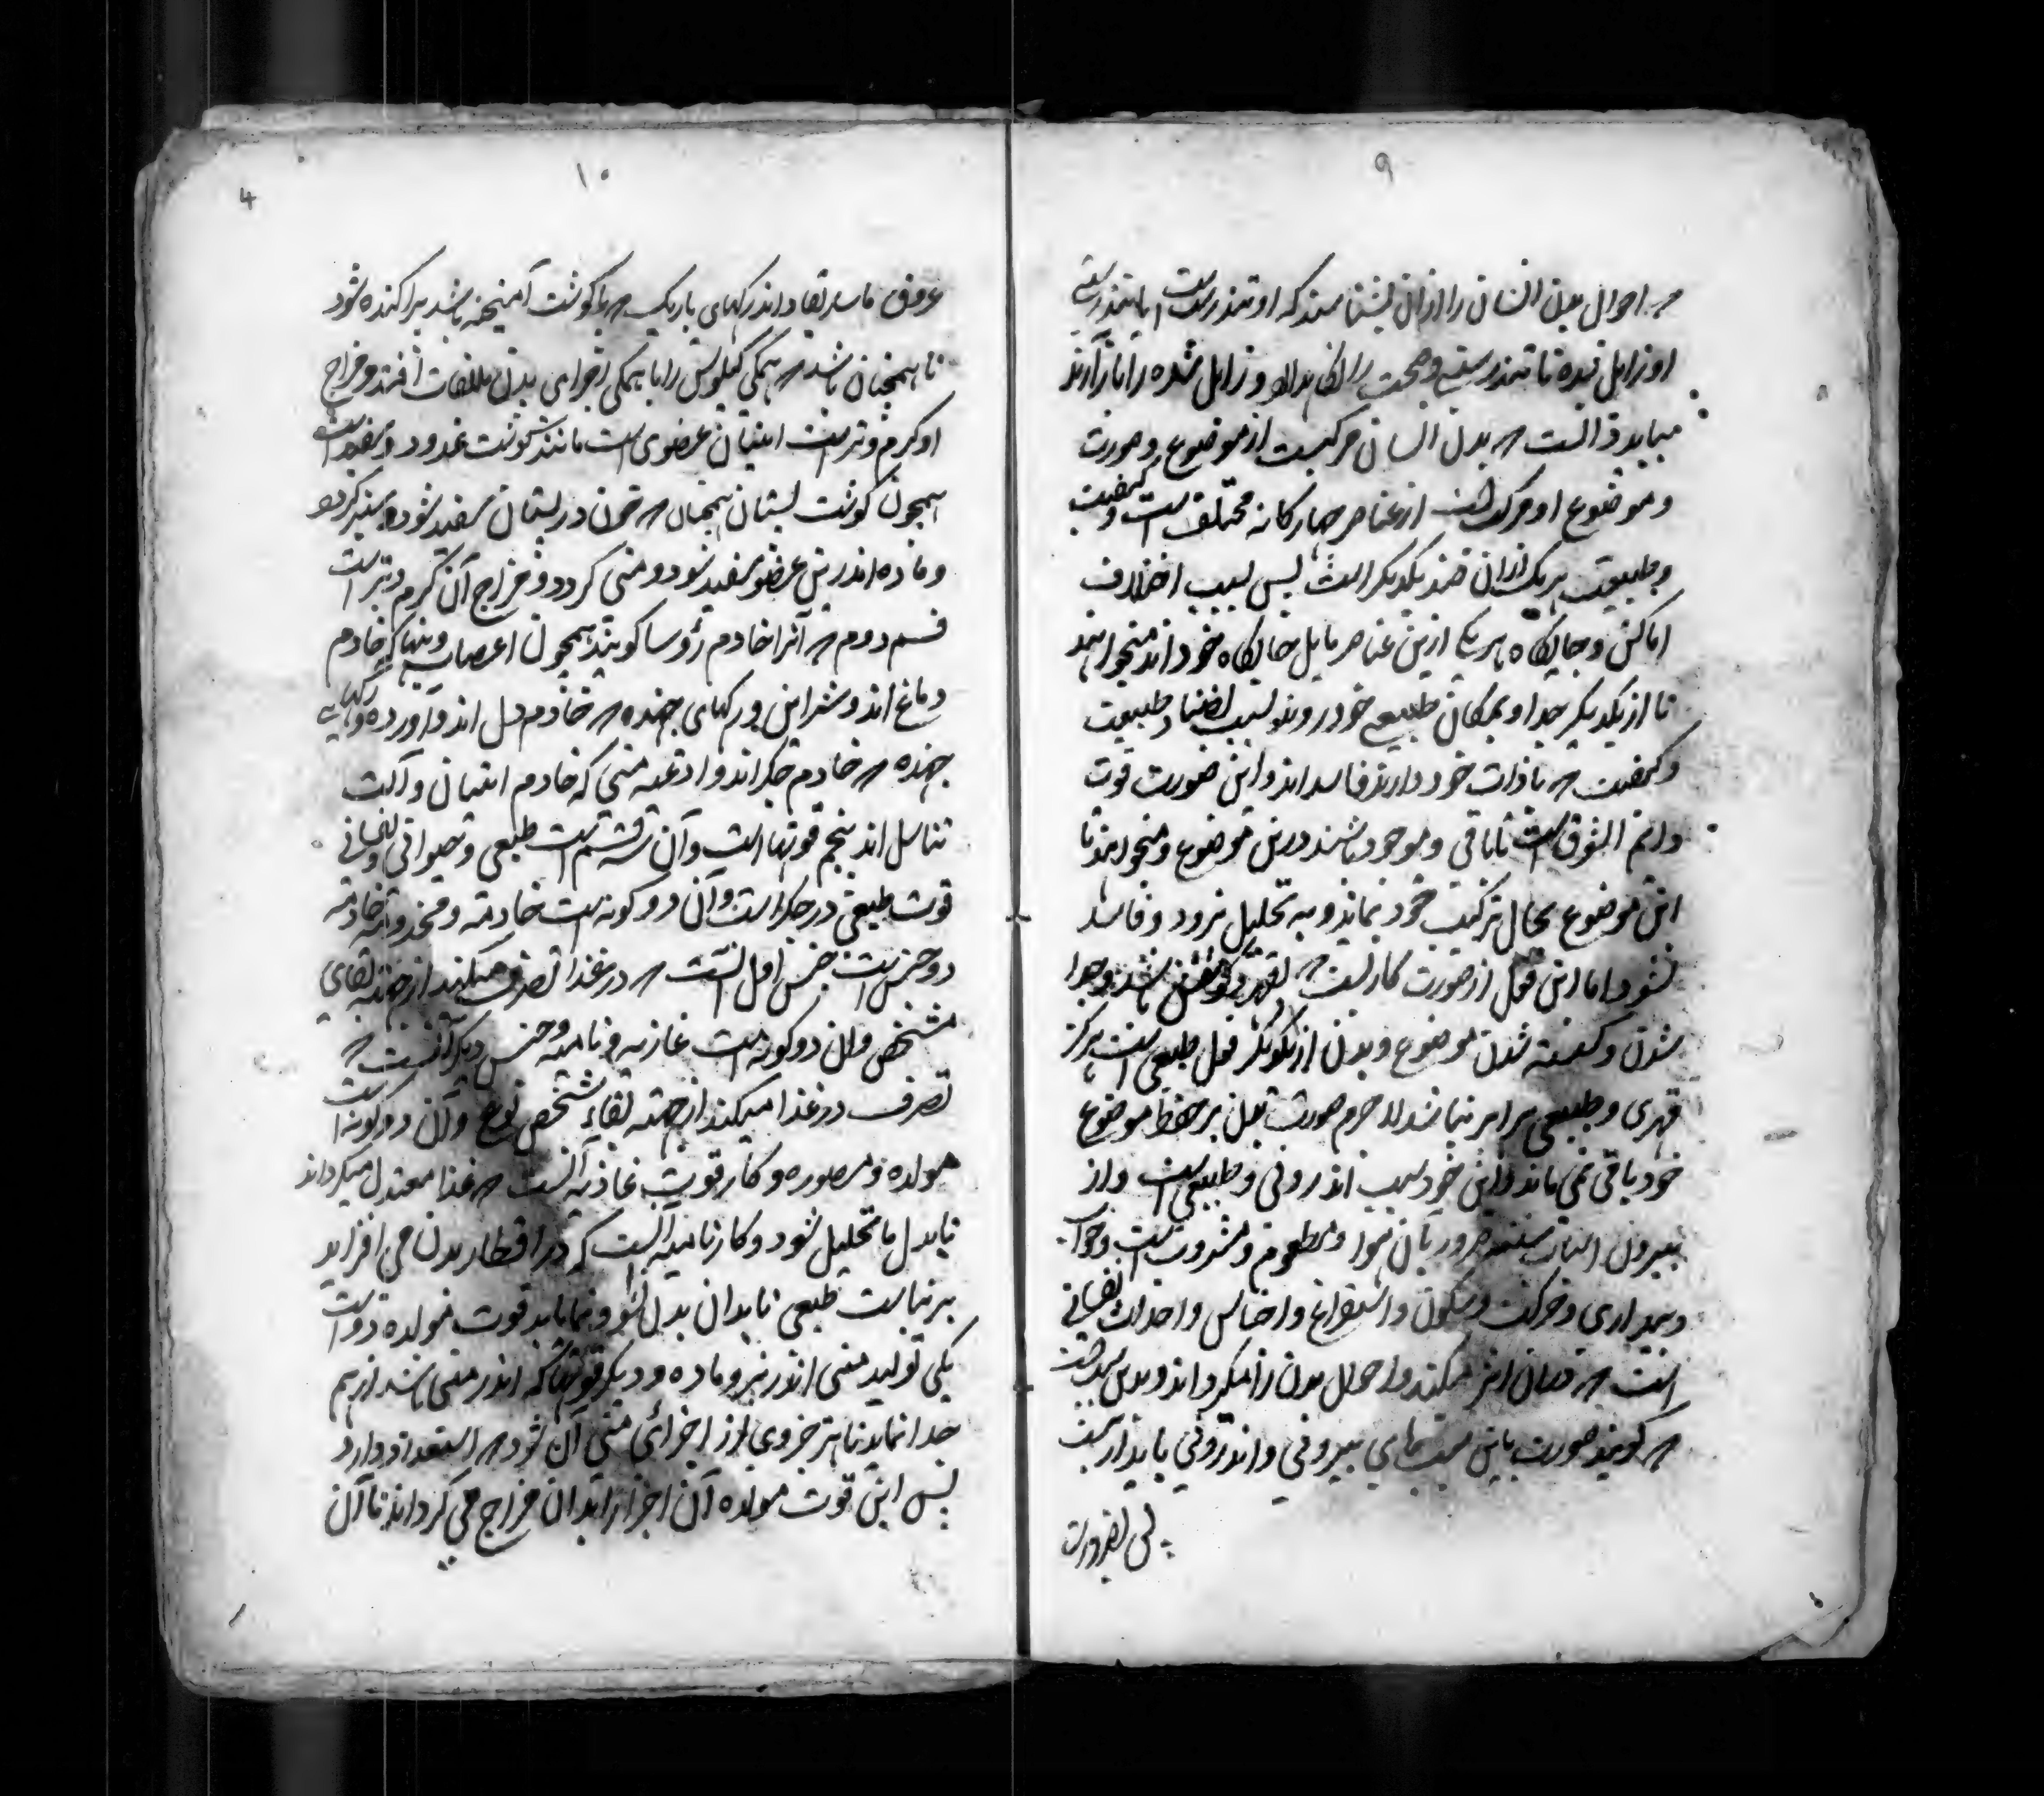 ۹
که احوال بدن انسان را ازان بشناسند که او تندرست است یا تندرستی
او زایل شده تا تندرستی و صحت را نگاه دارد و زایل شده را باز آرند
میباید دانست که بدن انسان مرکبست از موضوع و صورت
و موضوع او مرکب است از عناصر چهارگانه مختلف است و کیفیت
و طبیعت هر یک ازان ضد یکدیگر است پس بسبب اختلاف
اماکن و جایگاه هر یکی ازین عناصر مایل جایگاه خود اند میخواهند
تا از یکدیگر جدا و بمکان طبیعی خود روند و بسبب تضاد طبیعت
و کیفیت که با ذات خود دارند فاسد اند و این صورت قوت
دائم الشوق است تا باقی و موجود باشند درین موضوع و میخواهند تا
این موضوع بحال ترکیب خود بماند و به تحلیل نرود و فاسد
نشود اما این فعل از صورت کاریست که بقهر باشد و جدا
شدن و شدن موضوع و بدن از یکدیگر فعل طبیعی است هرگز
قهری و طبیعی برابر نباشد لاجرم صورت بدن بر حفظ موضوع
خود باقی نمی ماند و این خود سبب اندرونی و طبیعی است و از
بیرون اسباب سته ضروریه آن هوا و مطعوم و مشروب است و خواب
و بیداری و حرکت و سکون و استفراغ و احتباس و احداث نفسانی
است که دران اثر میکند و احوال بدن را میگرداند و بدین سبب است
که گویند صورت باین سببهای بیرونی و اندرونی پایدار نیست
پس بضرورت
۱۰
۴
عروق ماساریقا و اندر رگهای باریک که با گوشت آمیخته باشد پراکنده شود
تا همچنان باشد که همگی کیلوس را با همگی اجزای بدن ملاقات افتد و مزاج
او گرم و تر است انثیان عضوی است مانند گوشت غدود و سفید است
همچون گوشت پستان همچنان که خون در پستان سفید شود و شیر گردد
و ماده اندرین عضو سفید شود و منی گردد و مزاج آن گرم و تر است
قسم دوم که آنرا خادم رؤسا گویند همچون اعصاب و پیها که خادم
دماغ اند و شرائین و رگهای جهنده که خادم دل اند و آورده و رگهای
جهنده که خادم جگر اند و ادعیه منی که خادم انثیان و آلت
تناسل اند پنجم قوتها است و آن سه قسم است طبیعی و حیوانی و نفسانی
قوت طبیعی در جگر است و آن دو گونه است خادمه و مخدومه خادمه
دو جنس است جنس اول آنست که در غذا تصرف میکند از جهته بقای
مشخص و آن دو گونه است غاذیه و نامیه و جنس دیگر آنست که
تصرف در غذا میکند از جهته بقاء شخص نوع و آن دو گونه است
مولده و مصوره و کار قوت غاذیه آنست که غذا معتدل میگرداند
تا بدل ما تحلیل شود و کار نامیه آنست که در اقطار بدن می افزاید
بر نیابت طبعی تا بدان بدل نشو و نما یابد قوت مولده دو است
یکی تولید منی اندر نر و ماده و دیگر قوتها که اندر منی باشد از هم
جدا نماید تا هر جزوی از اجزای منی آن شود که استعداد دارد
پس این قوت مولده آن اجزا را بدان مزاج می گرداند تا آن